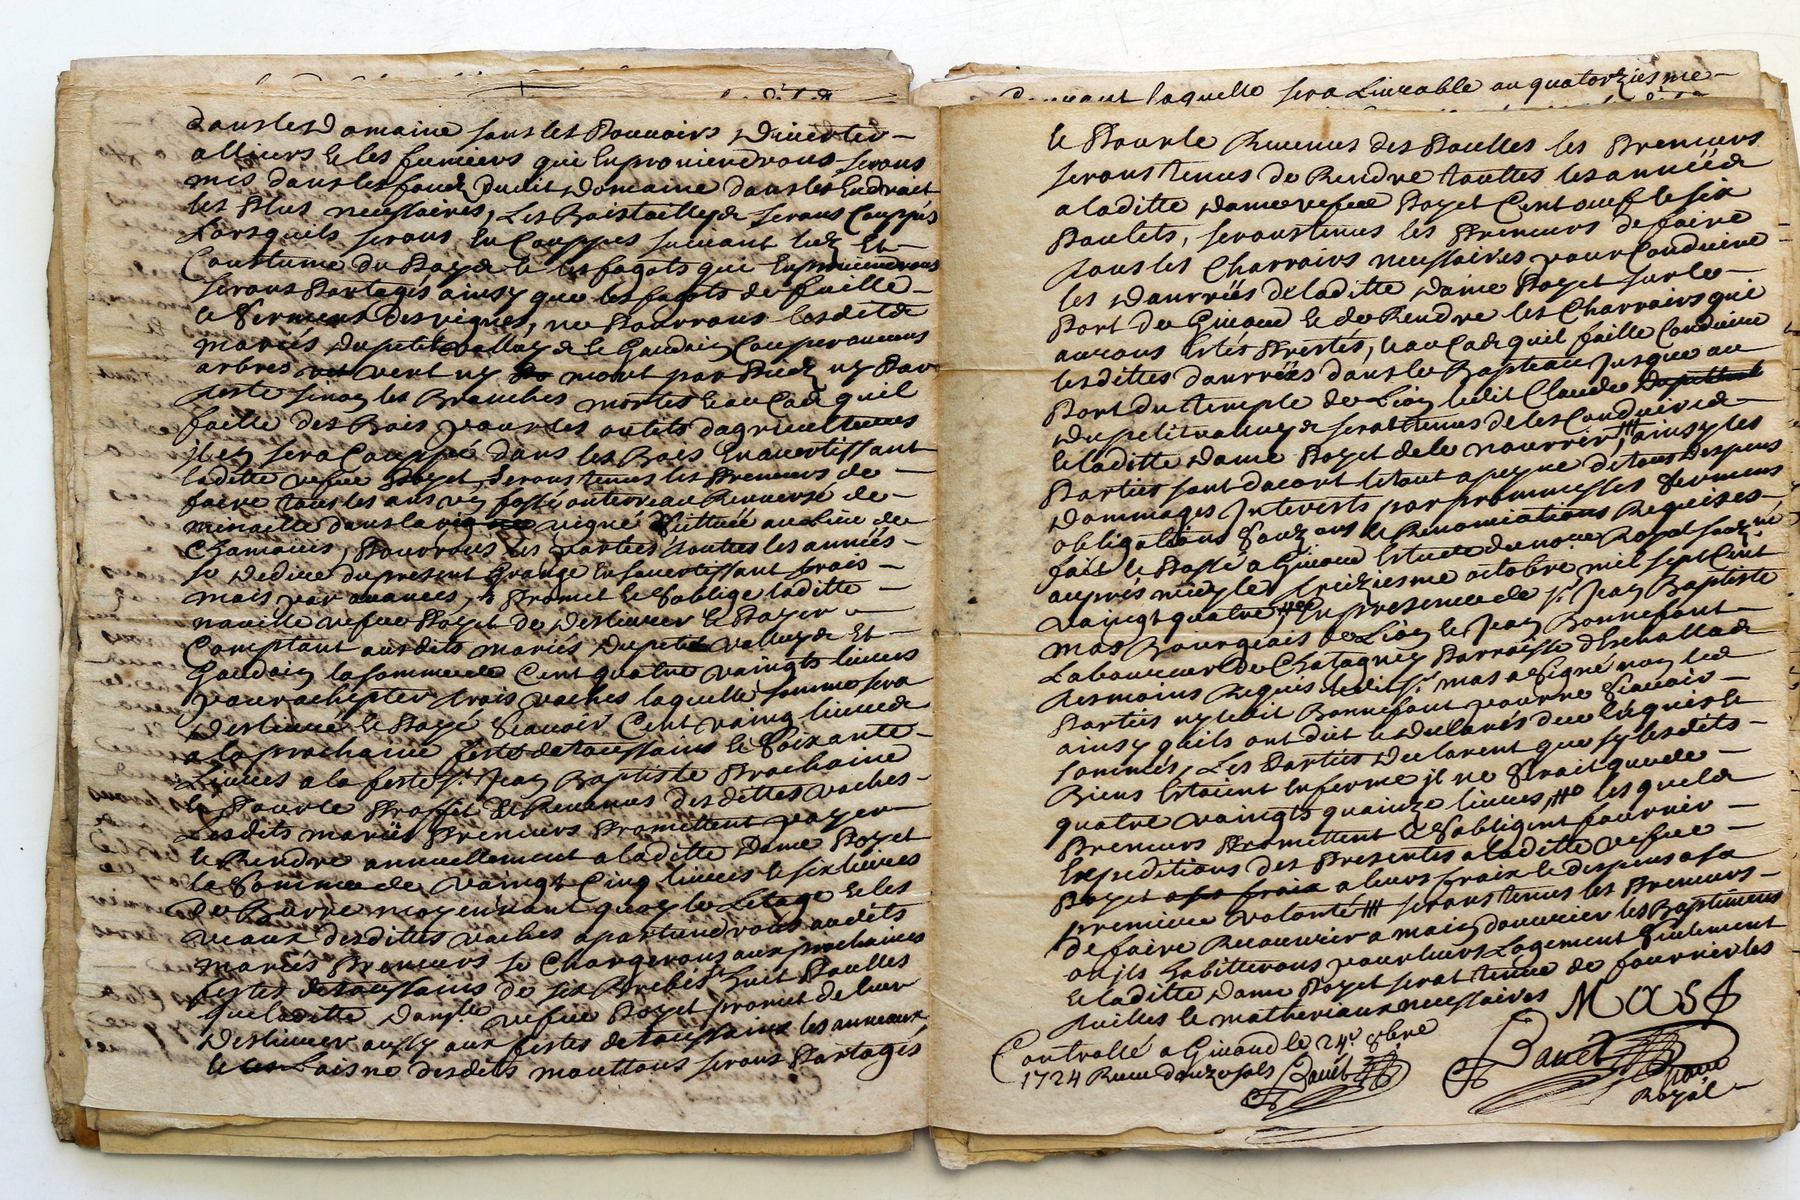 dans les Domaine sans les Pouvoirs Divertir
allieurs & les fumiers qui En proviendrons serons
mis dans les fond dudit Domaine dans les Endroict
les Plus necessaires, Les Bois taillys serons Couppés
Lorsquils serons En Couppes suivant luz Et
Coustume du Pays & les fagots qui En proviendrons
serons Partagés ainsy que les fagots de fueille
& Sermens des vignes, ne Pourrons lesdits
mariés Dupetit & le Gaudoin Couper aucuns
arbres vert ny mort par Pied ny Par
teste sinon les Branches mortes & au Cas quil
faille des Bois pour les outils dagriculteures
il en sera Couppé dans les Bois En avertissant
laditte vefue Poyet, serons tenus les Preneurs de
faire tous les ans un fossé ou terreau Renversé de
dans la vigne Scittuée au Lieu de
Chamoins, Pourrons les parties toutes les années
se Dedire du present Grange En savertissant trois
mois par avances, & Promet & Soblige laditte
vefue Poyet de Deslivrer & Payer
Comptant ausdits mariés Dupetit Et
Gaudoin la somme de Cent quatre vaingts livres
pour achepter trois vaches laquelle somme sera
Deslivrée & Payé Scavoir Cent vaingt livres
a la prochaine feste de toussains & Soixante
Livres a la feste St Jean Baptiste Prochaine
& Pour le Proffit & Revenus desdittes vaches
Lesdits mariés Preneurs Promettent payer
& Rendre annuellement a laditte Dame Poyet
la Somme de vaingt Cinq livres & six livres
De Burre moyennant quoy le Letage & les
veaux desdittes vaches apartiendrons ausdits
mariés Preneurs se Chargerons aux prochaines
festes de toussains de six Brebis & huit Poulles
que laditte vefue Poyet promet de leur
Deslivrer aussy aux festes de toussains les anneaux
& Laisne desdits mouttons serons Partagés
laquelle sera Livrable au quatorziesme
& Pour le Revenus des Poulles les Preneurs
serons tenus de Rendre touttes les années
a laditte Dame vefue Poyet Cent oeuf & six
Poulets, serons tenus les Preneurs de faire
tous les Charrois necessaires pour Conduire
les Danrrées de laditte Dame Poyet sur le
Port de Givord & de Rendre les Charrois qui
aurons Estés Prestés, & au Cas quil faille Conduire
lesdittes danrrées dans le Bapteau Jusque au
Port du temple de Lion ledit Claude
Dupetit serat tenus de les Conduire
& laditte Dame Poyet de le nourrir, ainsy les
Parties sont dacort le tout a peyne de tous Despens
Dommages Interests par prommesses Sermens
obligations & Renonciations Requises
fait & Passé a Givord Estude du no.re Royal
auprés midy le treiziesme octobre mil sept Cent
vaingt quatre En presence de Sr Jean Baptiste
mas Bourgeois de Lion & Jean Bonnefont
Laboureur de Chatagnes Parroisse dEchallas
tesmoins Requis ledit Sr mas a signé non les
Parties ny ledit Bonnefont pour ne Scavoir
ainsy quils ont dit & declarés de ce Enquis &
sommés, Les Parties Declarent que sy lesdits
Biens Estoient En ferme il ne Serait que de
quatre vaingts quainze livres les quels
Preneurs Promettent & Sobligent fournir
Expeditions des Presentes a laditte vefue
Poyet a ses fraix a leurs fraix & despens a sa
premiere volonté serons tenus les Preneurs
de faire Recouvrir a main douvrier les Baptimens
ou ils habitterons pour leurs Logement Seulement
& laditte Dame Poyet serat tenue de fournir les
tuilles & matheriaux necessaires
MAS
Controllé a Givord le 24e 8bre
1724 Receu douze sols Bouët
Bouët
no.re
Royal